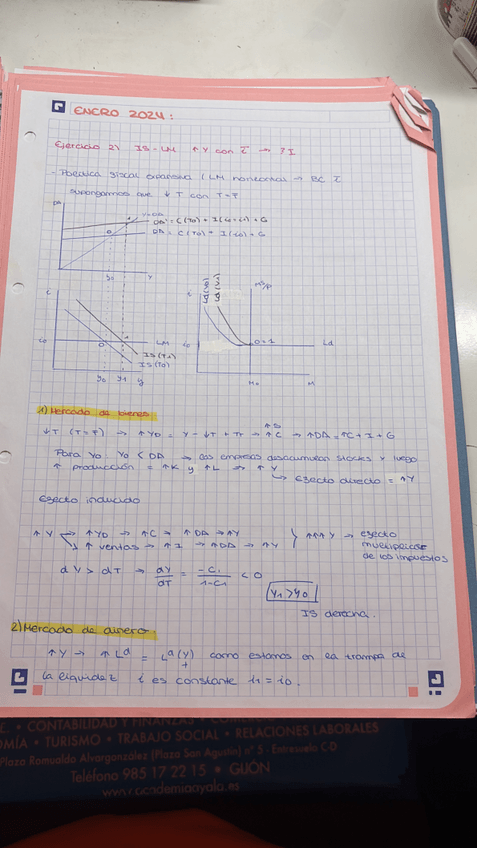 ENERO 2024:
Ejercicio 2) IS-LM ↑Y con i̅ →
- Política fiscal expansiva (LM horizontal → BC i̅
supongamos que ↓T con T=T̅
DA
Y=DA
DA' = C(T1) + I(i0) + G
DA = C(T0) + I(i0) + G
Y0
Y
i
i0
LM
IS(T1)
IS(T0)
Y0 Y1 Y
i
MS/P
i0
0=1
Ld
M0
M
1) Mercado de bienes
↓T (T=T̅) → ↑YD = Y - ↓T + Tr → ↑C → ↑DA = ↑C + I + G
Para Y0: Y0 < DA → las empresas desacumulan stocks y luego
↑ producción = ↑K y ↑L → ↑Y
↳ Efecto directo = ↑Y
Efecto inducido
↑Y → ↑YD → ↑C → ↑DA → ↑Y
↑ ventas → ↑I → ↑DA → ↑Y
} ↑↑↑Y → efecto
multiplicador
de los impuestos
dY > dT → dY/dT = -C1/1-C1 < 0
Y1 > Y0
IS derecha.
2) Mercado de dinero:
↑Y → ↑Ld = Ld(Y) como estamos en la trampa de
+
la liquidez i es constante i1 = i0.
E. • CONTABILIDAD Y FINANZAS •
OMÍA • TURISMO • TRABAJO SOCIAL • RELACIONES LABORALES
Plaza Romualdo Alvargonzález (Plaza San Agustín) nº 5 - Entresuelo C-D
Teléfono 985 17 22 15 • GIJÓN
www.academiaayala.es